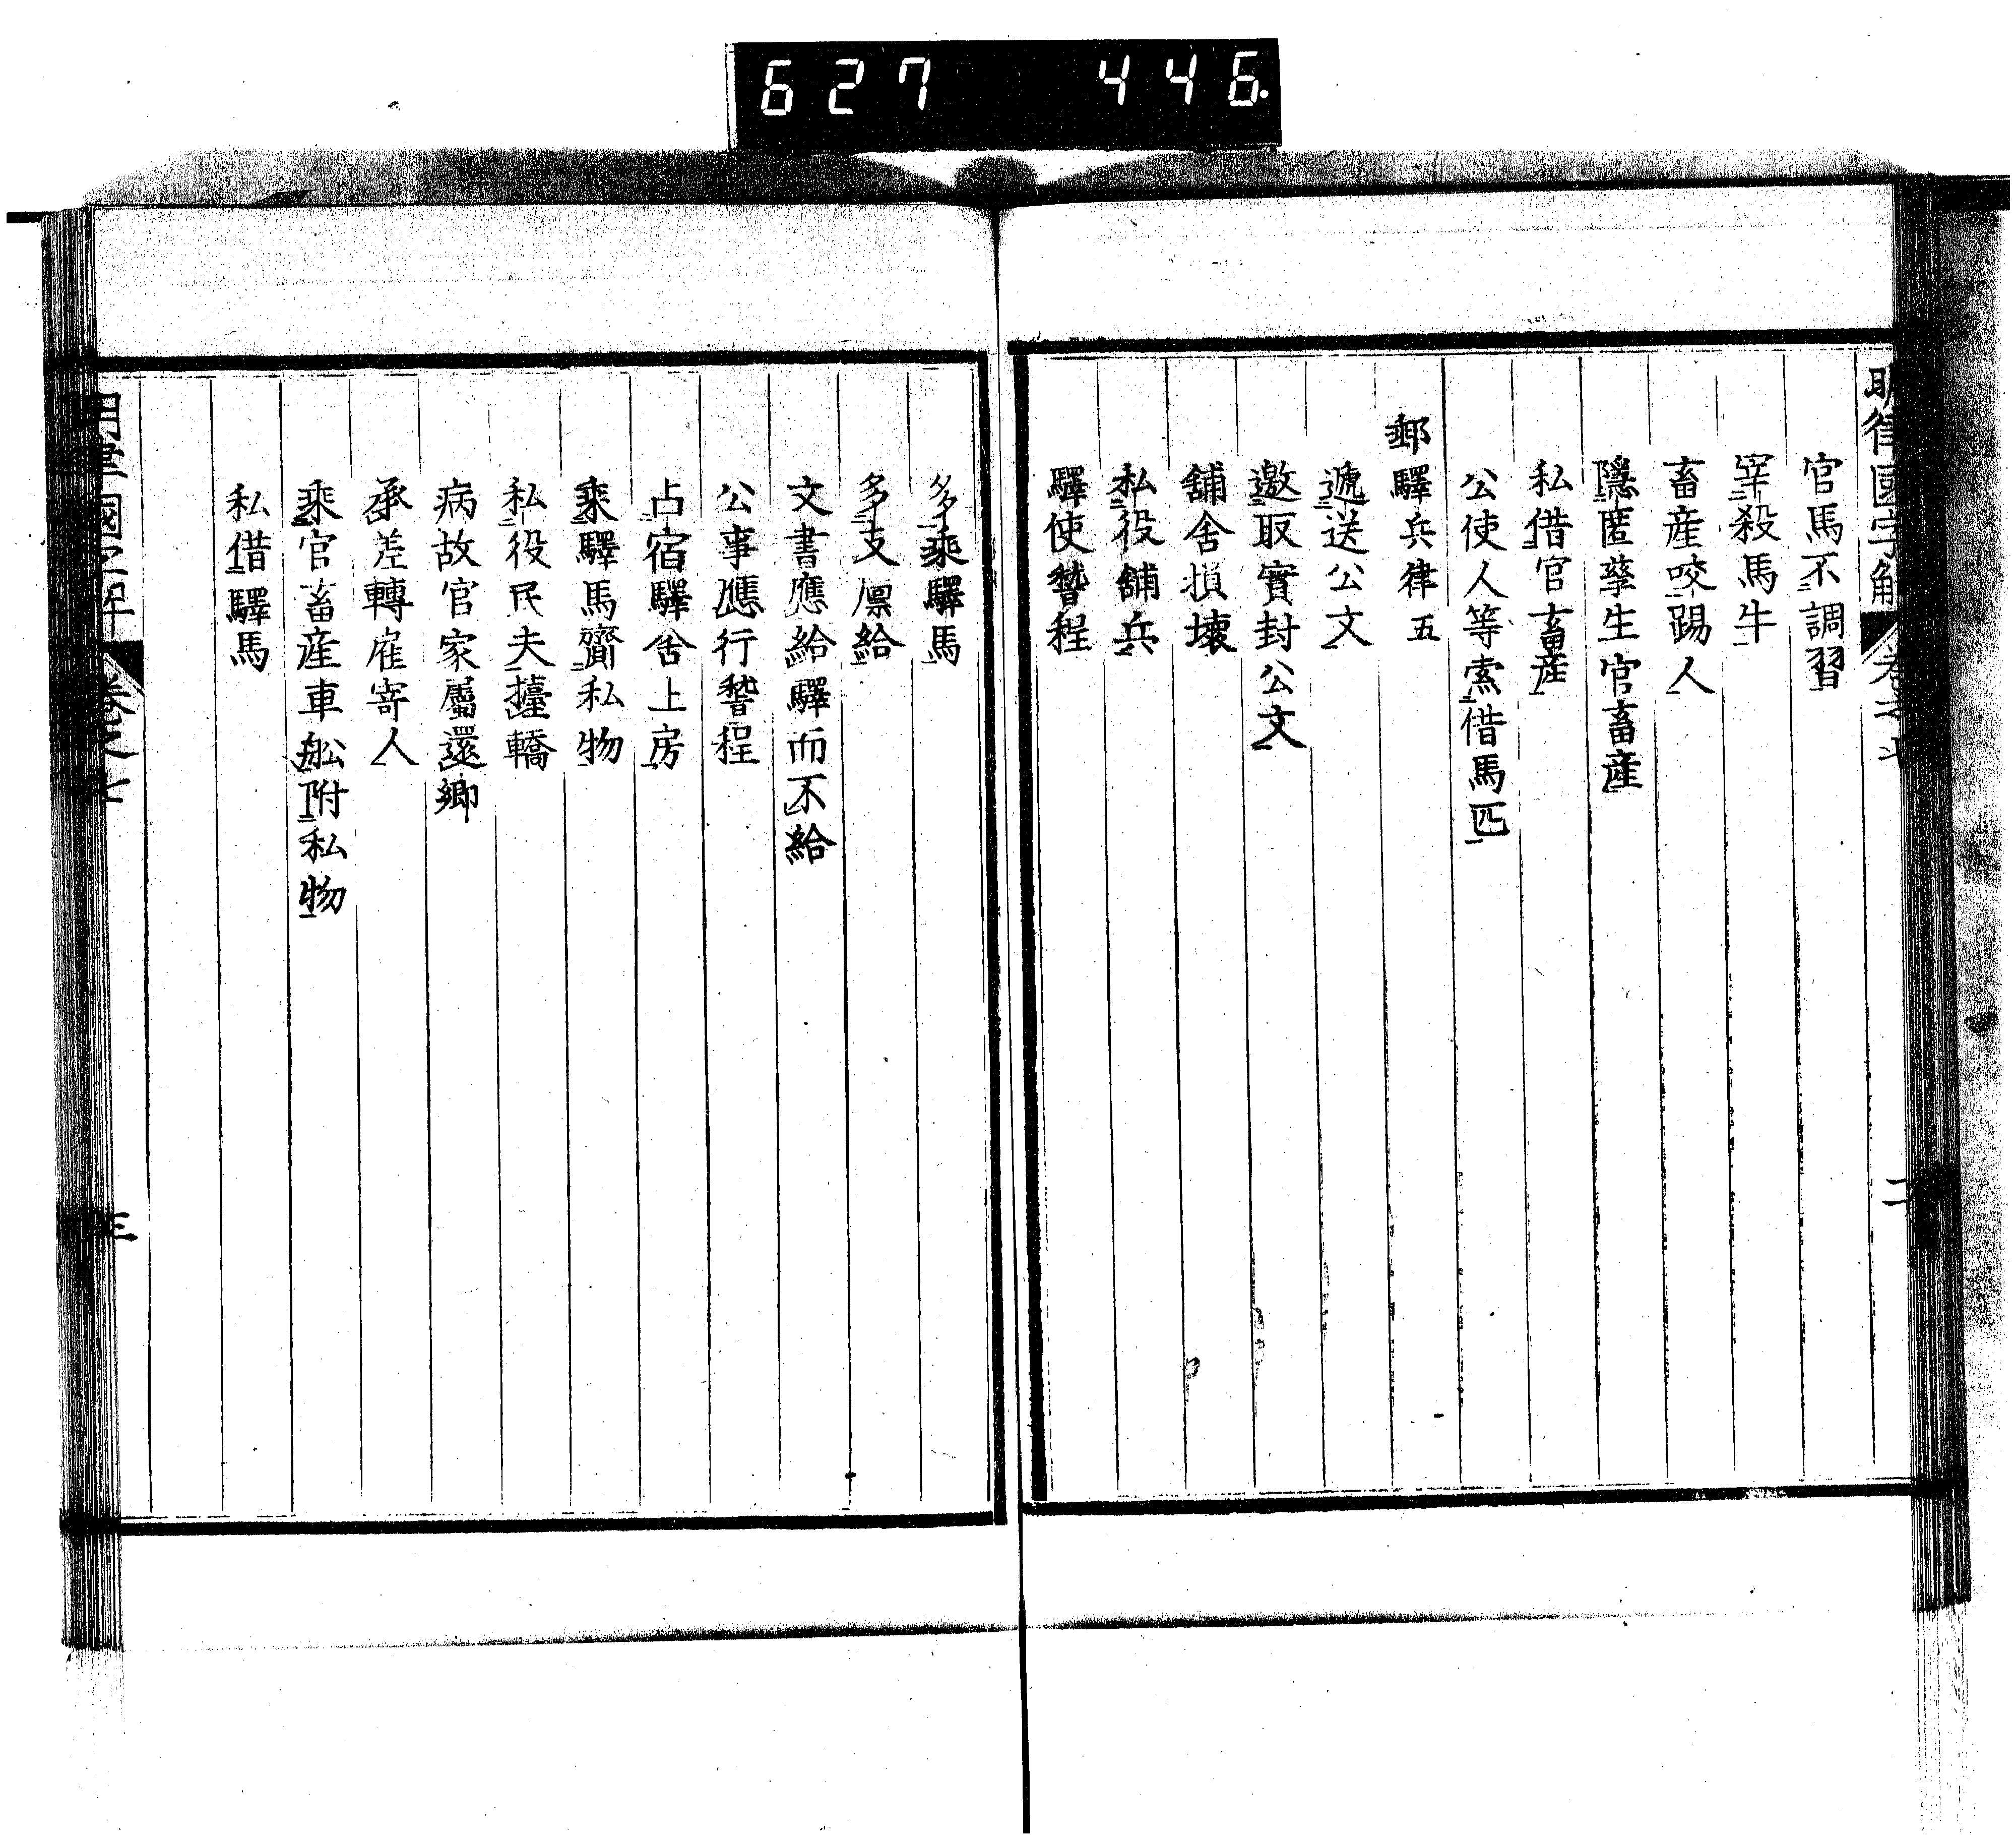 627 446.
明律國字解 卷之七 二
官馬不調習
宰殺馬牛
畜産咬踢人
隱匿孳生官畜産
私借官畜産
公使人等索借馬匹
郵驛兵律五
遞送公文
邀取實封公文
鋪舍損壞
私役鋪兵
驛使稽程
多乘驛馬
多支廩給
文書應給驛而不給
公事應行稽程
占宿驛舍上房
乘驛馬齎私物
私役民夫擡轎
病故官家屬還鄉
承差轉雇寄人
乘官畜産車舩附私物
私借驛馬
明律國字解 卷之七 三